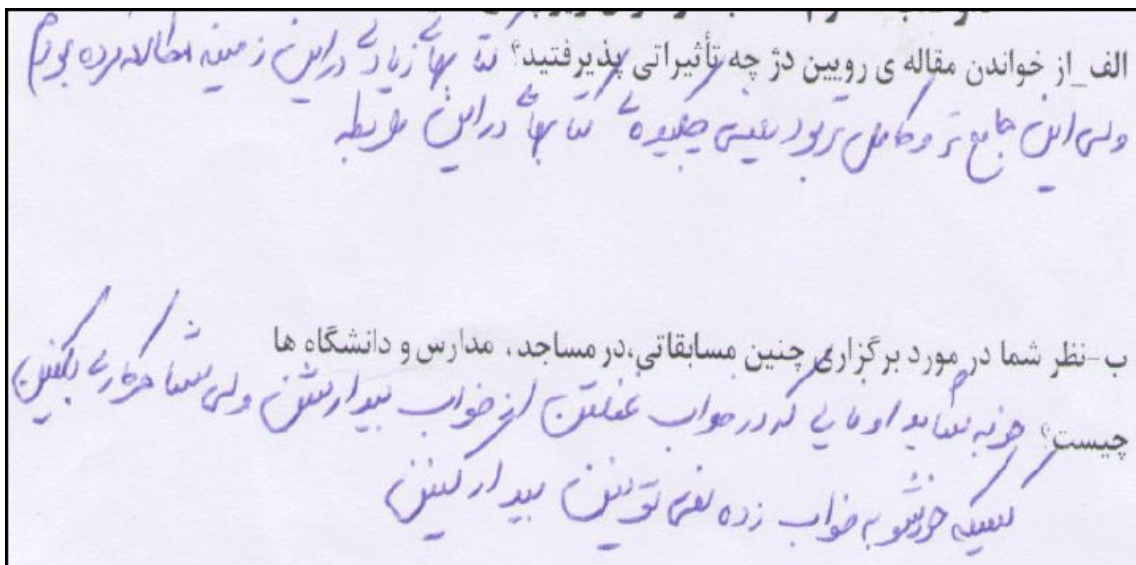 الف_از خواندن مقاله ی رویین دژ چه تأثیراتی پذیرفتید؟ کتا بهای زیادی در این زمینه مطالعه کرده بودم
ولی این جامع تر و کامل تر بود یعنی چکیده ی کتا بهای در این رابطه
ب-نظر شما در مورد برگزاری چنین مسابقاتی،در مساجد، مدارس و دانشگاه ها
چیست؟ خوبه شاید اونایی که در خواب غفلتن از خواب بیدار بشن ولی شما هرکاری بکنین
کسیکه خودشو به خواب زده نمی تونین بیدار کنین